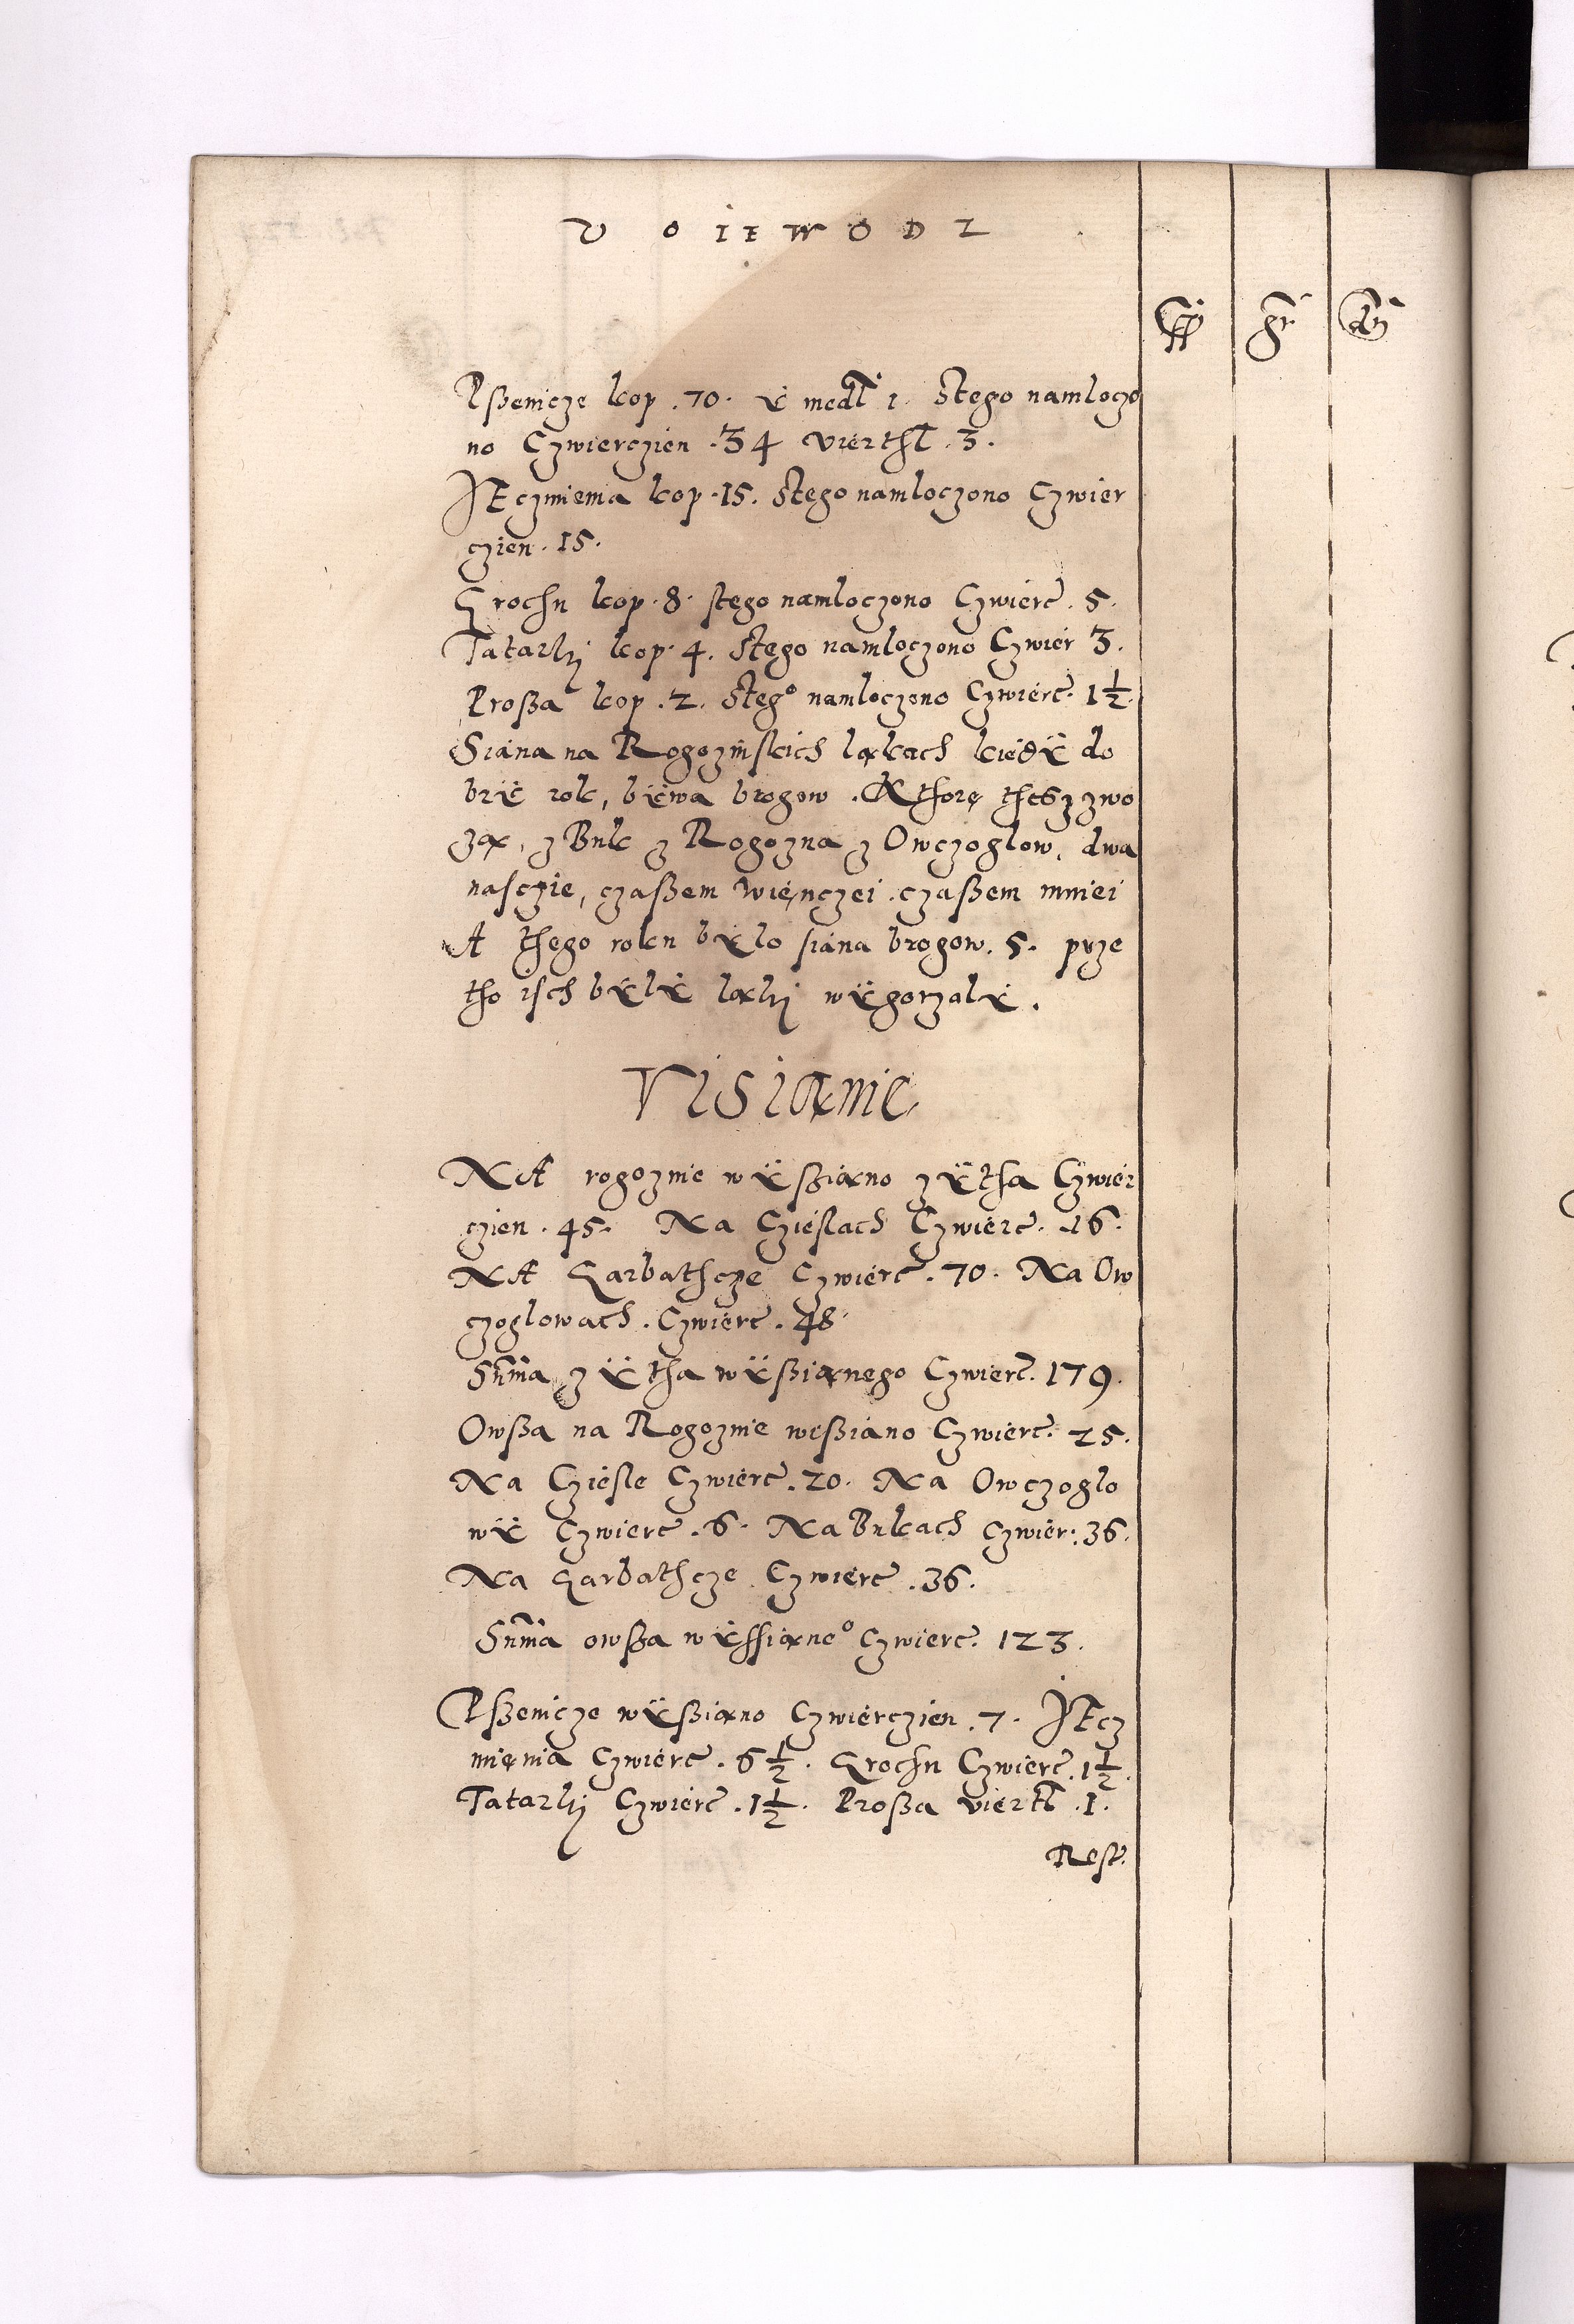 VOIIWODZ
gr
Pßenicze kop .70. ÿ medl 1. Stego namloczo
no Czwierczien .34 viérthl .3.
JEczmiema kop .15. Stego namloczono Czwier
czien .15.
Grochu kop .8. stego namloczono Czwierc .5.
Tatarki kop .4. Stego namloczono Czwier 3.
Proßa kop .2. Steg° namloczono Czwierc. 1½.
Siana na Rogozinskich ląkach kiédÿ do
brÿ rok, bÿwa brogow. Kthorę theß zwo
zą, z Buk z Rogozna z Owczoglow, dwa
nasczie, czaßem Więnczei czaßem mniei
A thego roku bÿlo siana brogow. 5. prze
tho isch bÿlÿ ląki wÿgorzalÿ.
VISIANIE
NA rogoznie wÿßiano zÿtha Czwier
czien .45. Na Czieslach Czwierc .16.
NA Garbathcze Czwierc .70. Na Ow
czoglowach. Czwierc .48.
Suma zÿtha wÿßianego Czwierc. 179.
Owßa na Rogoznie weßiano Czwierc. 25.
Na Cziesle Czwierc .20. Na Owczoglo
wÿ Czwierc .6. Na Bukach Czwier: 36.
Na Garbathcze Czwierc .36.
Suma owßa wÿssiane° Czwierc. 123.
Pßenicze wÿßiano Czwierczien .7. JEcz
mięnia Czwierc .6½. Grochu Czwierc .1½.
Tatarki Czwierc .1½. Proßa viertl .1.
Rest.